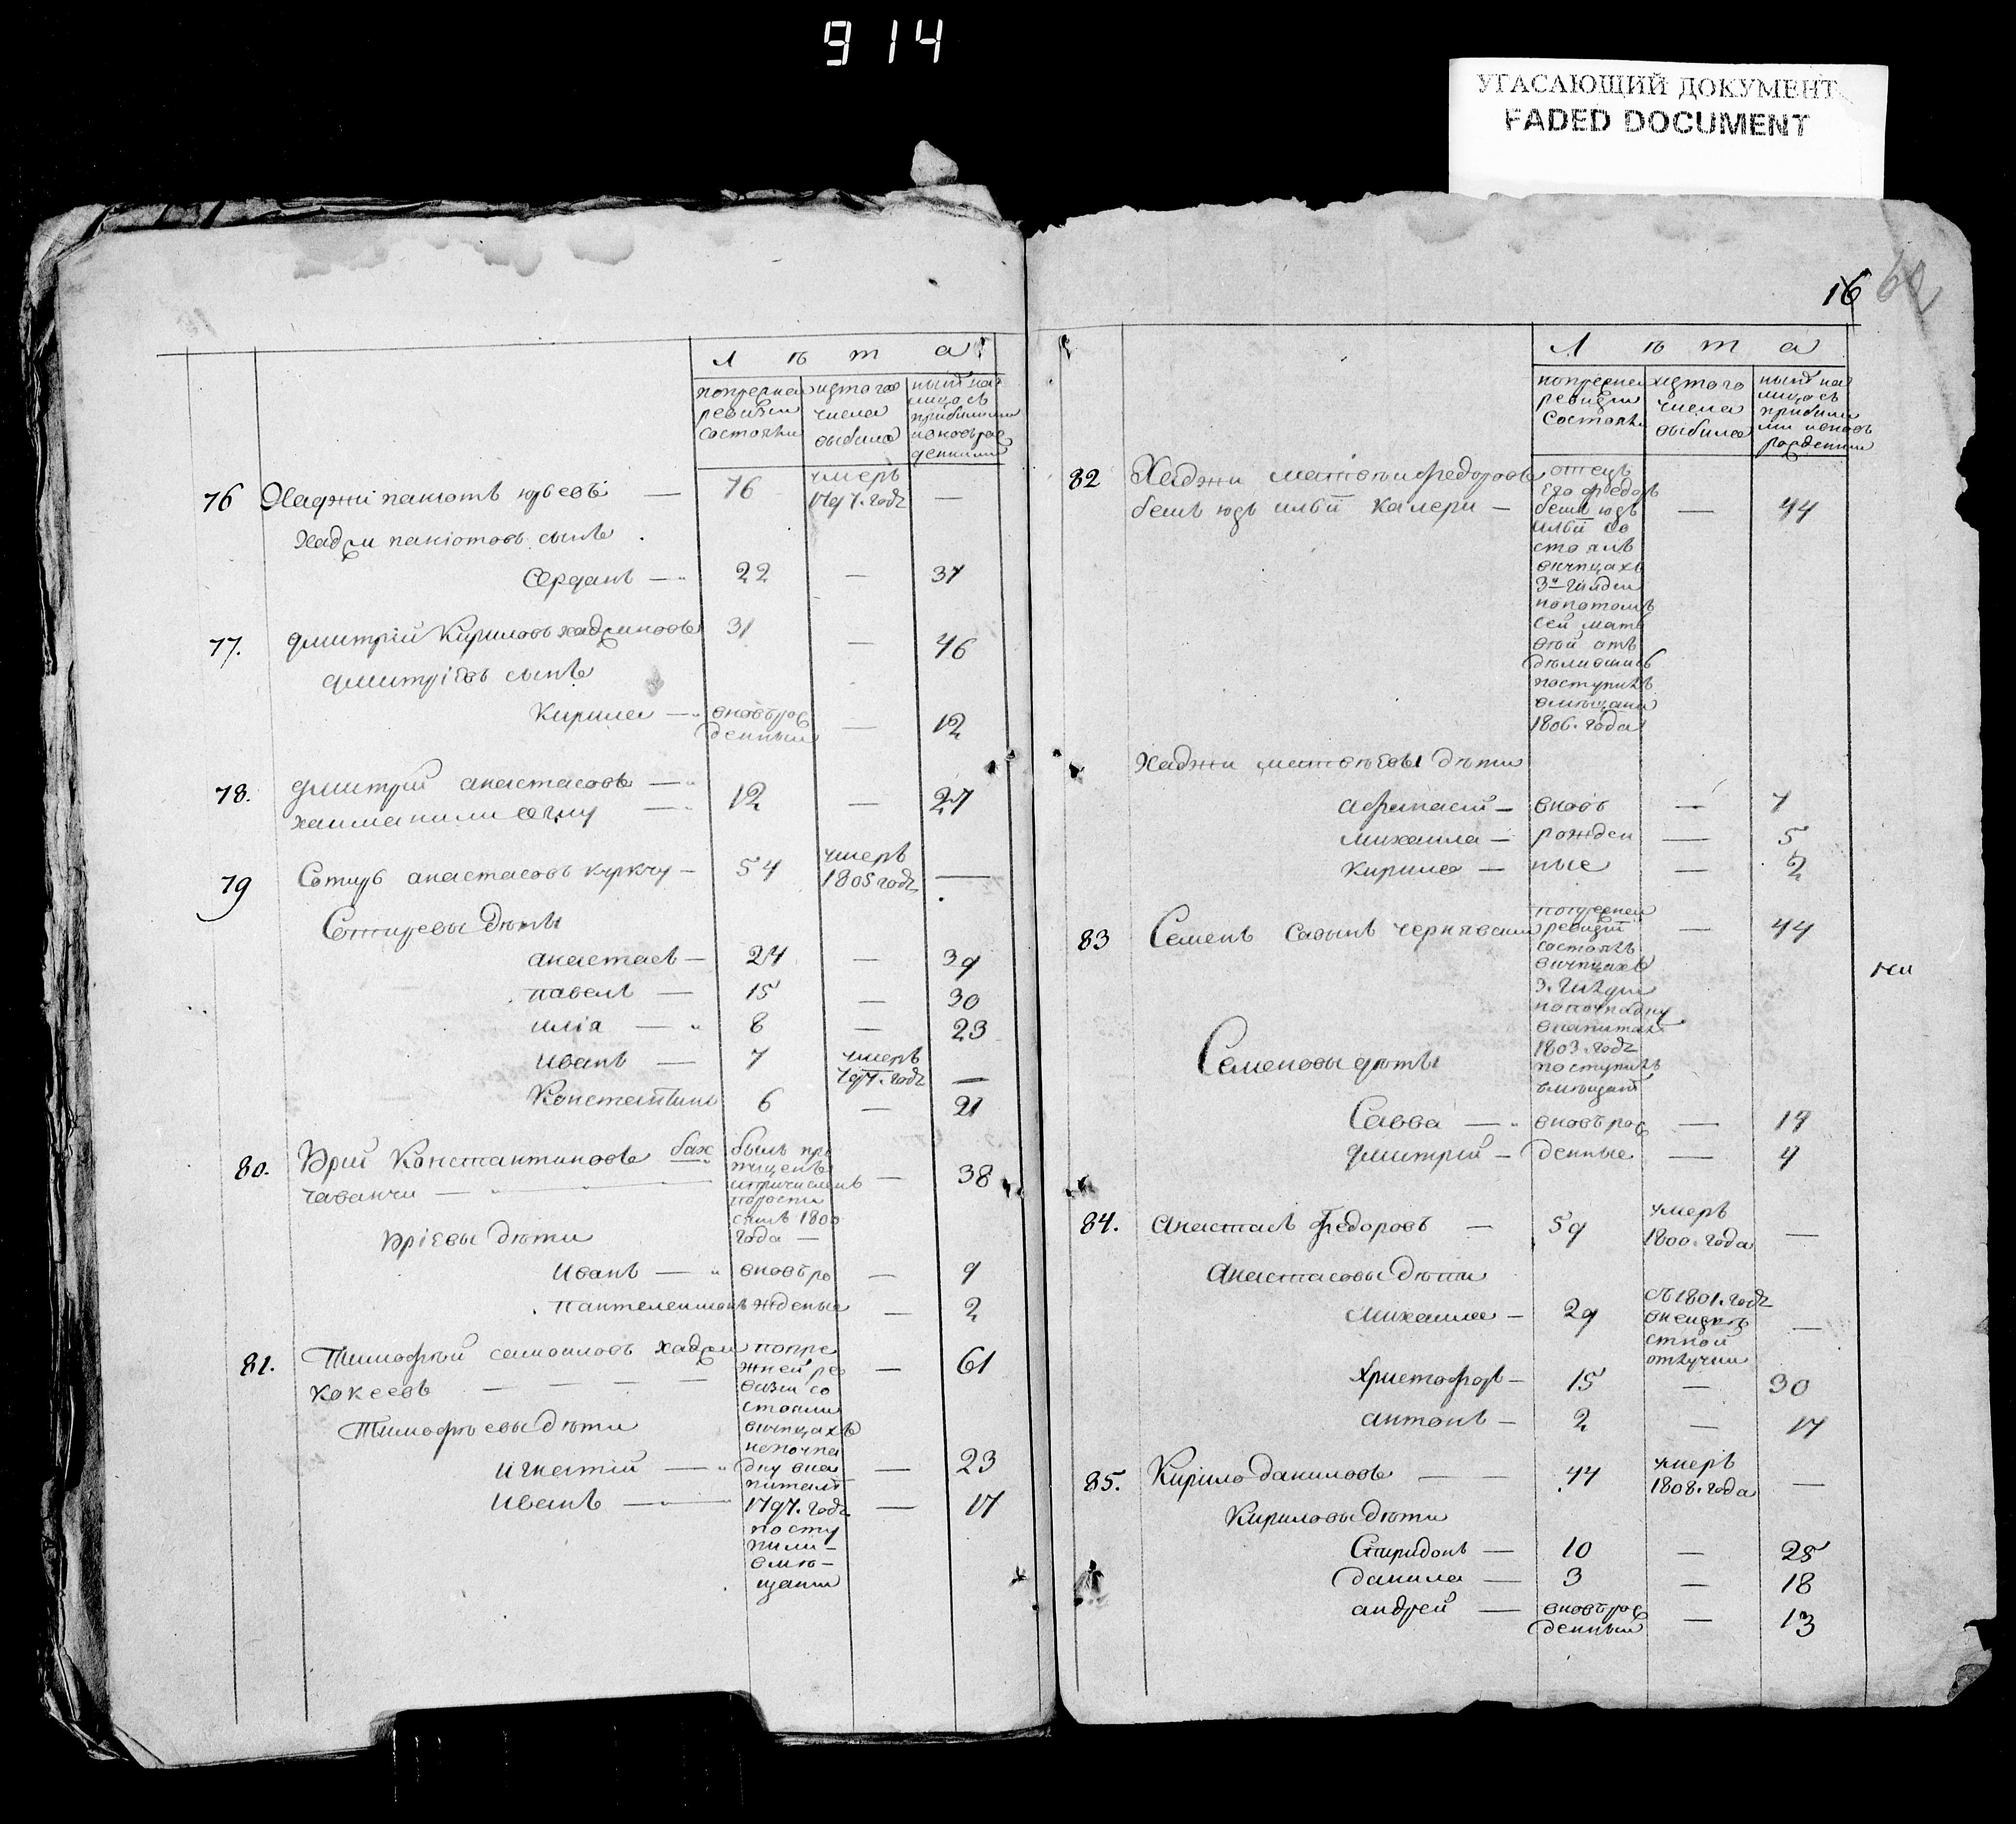 914
УГАСАЮЩИЙ ДОКУМЕНТ
FADED DOCUMENT
Л ѣ т а
попрежней ревизіи состояли
изтого числа выбыло
нынѣ на лицо съ прибылыми и вновь рожденными
76 Хаджи паніотъ юрьевъ — 76 умеръ 1797. годѣ —
Хаджи паніотовъ сынъ
Сердань — 22 — 37
77. дмитрій Кириловъ хаджиновъ 31 — 46
дмитріевъ сынъ
Кирила — вновь рожденный — 12
78. дмитрій анастасовъ —
12 — 27
79 Сотиръ анастасовъ куркчу — 54 умеръ 1805 годѣ —
Сотиревы дѣти
анастасъ — 24 — 39
павелъ — 15 — 30
илія — 8 — 23
иванъ — 7 умеръ 797. годѣ —
Константинъ 6 — 21
80. Юрій Константиновъ бах
чаванчи — — 38
былъ при
пущенъ
и причисленъ
по рости
1800
года —
Юріевы дѣти
иванъ — вновь ро — 9
пантелеимонъ жденые — 2
81. Тимофѣй самоиловъ хаджи
кокеевъ — — — — — 61
попре
жней ре
визіи со
стояли
вкупцахъ
непочна
дку вка
питалѣ
1797. годѣ
посту
пили —
вмѣ —
щани
Тимофѣевы дѣти
игнатій — — 23
иванъ — — 17
16
Л ѣ т а
попрежней ревизіи состояли
изтого числа выбыло
нынѣ на лицо съ прибылыми и вновь рожденными
82 Хаджи матвѣи федоровъ
бешъ юзъ илѣй калери — — 44
отецъ
его федоръ
бешъ юзъ
илѣй со
стоялъ
вкупцахъ
3й гилдіи
нопотомъ
сей мат
вѣй отъ
дѣлившись
поступилъ
вмѣщани
1806. года
Хаджи матвѣевы дѣти
афанасій — вновь — 7
михаила — рожден — 5
кирила — ные — 2
83 Семенъ савинъ чернявский — 44
попрежней
ревизіи
состоялъ
вкупцахъ
3. гилдіи
1803. годѣ
поступилъ
вмѣщанѣ
Семеновы дѣти
Савва — вновь рож — 17
дмитрій — денные — 4
84. анастасъ федоровъ — 59 умеръ 1800. года —
анастасовы дѣти
михаила — 29 съ 1801. годѣ —
отлучки
христофоръ — 15 — 30
антонъ — 2 — 17
85. Кирило даниловъ — 44 умеръ 1808. года —
Кириловы дѣти
Спиридонъ — 10 — 25
данила — 3 — 18
андрей — вновь рожденный — 13